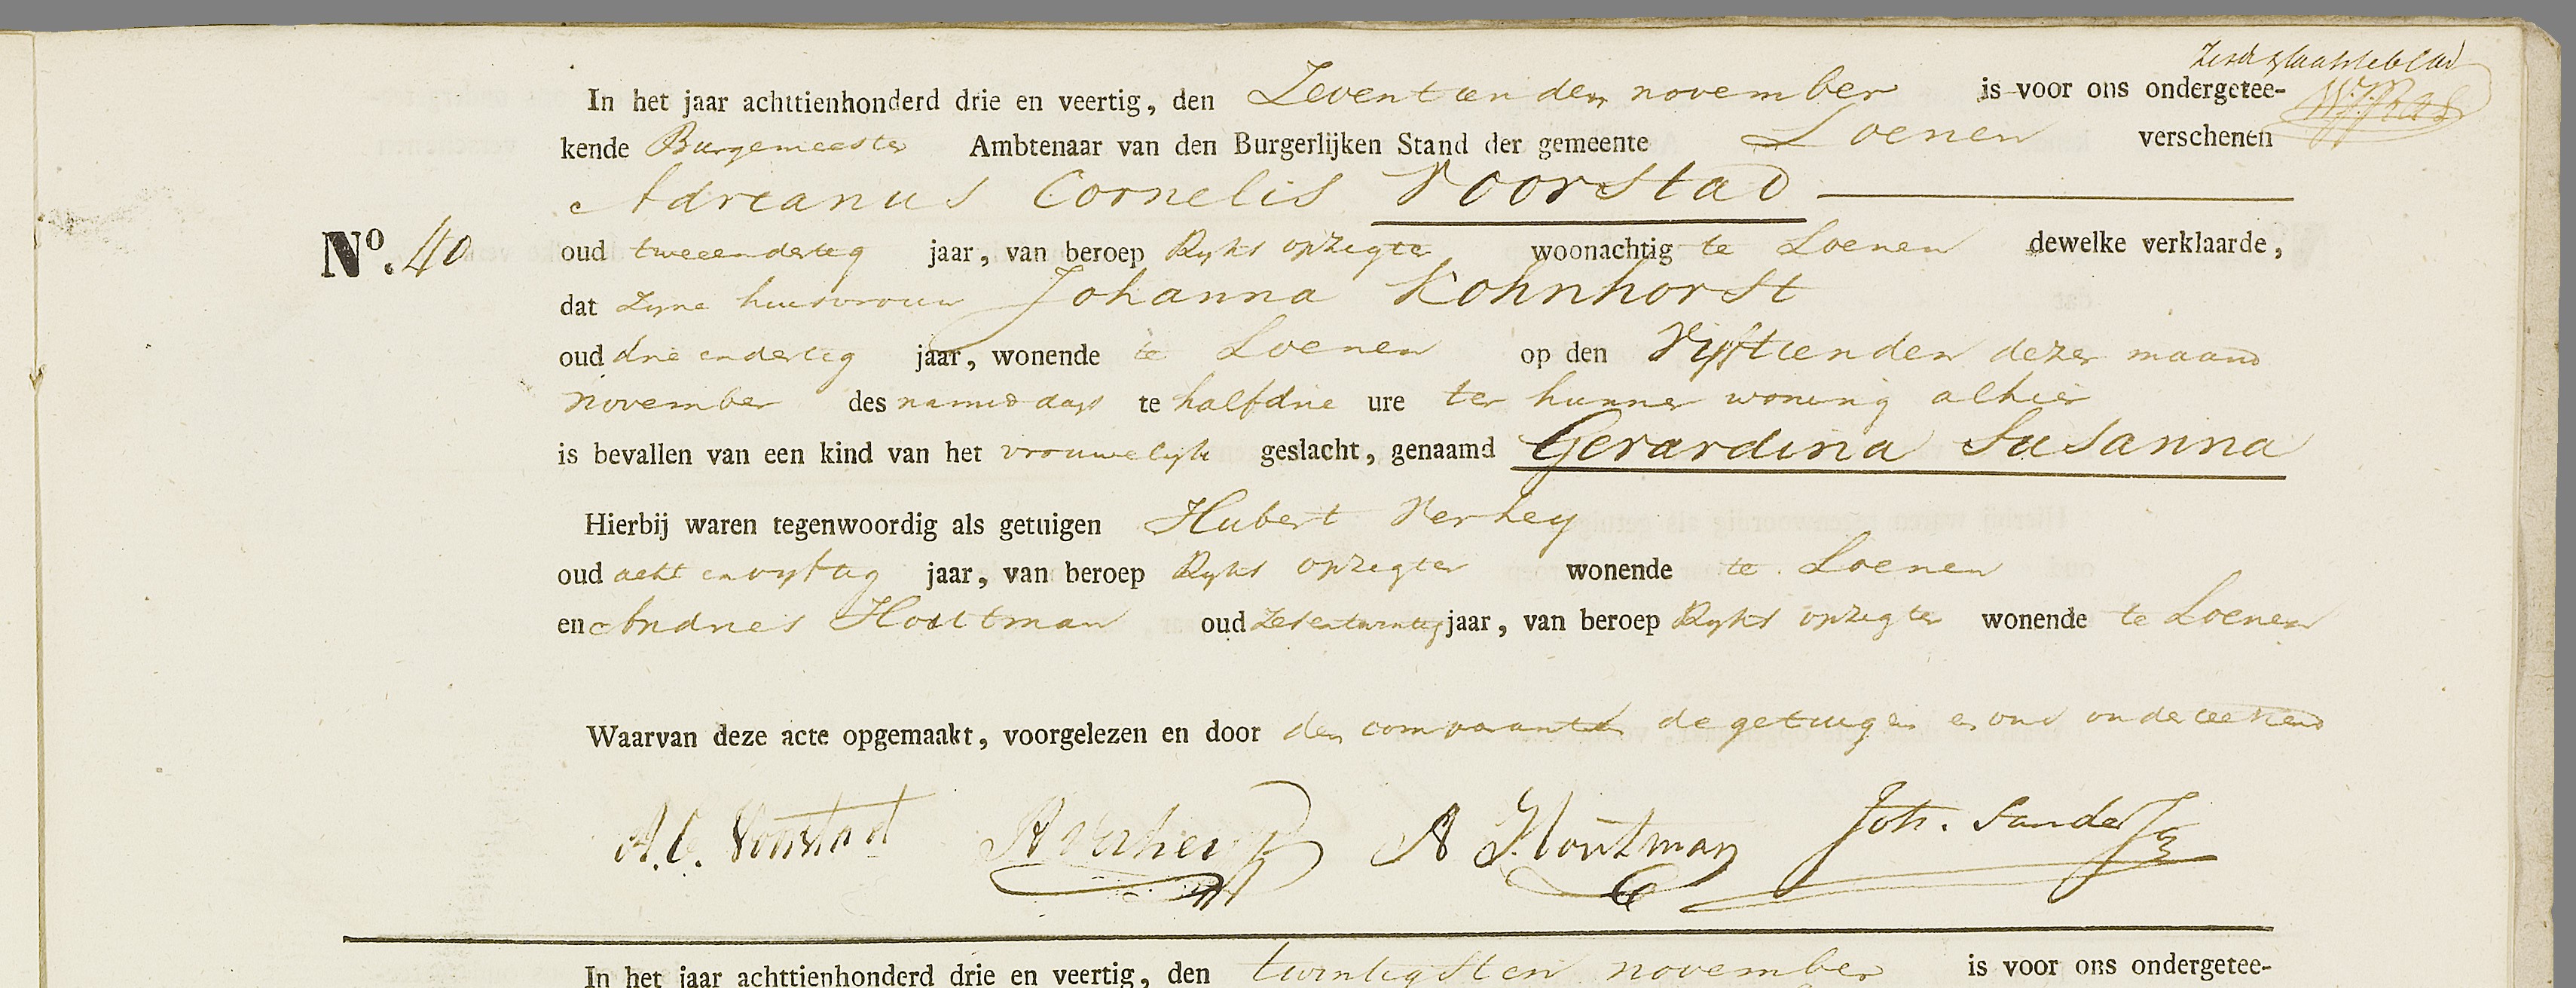 In het jaar achttienhonderd drie en veertig, den Zeventienden november is voor ons ondergetee-
kende Burgemeester Ambtenaar van den Burgerlijken Stand der gemeente Loenen verschenen
Adrianus Cornelis Voorstad
No. 40
oud tweeendertig jaar, van beroep Ryks opzigter woonachtig te Loenen dewelke verklaarde,
dat zyne huisvrouw Johanna Kohnhorst
oud drie endertig jaar, wonende te Loenen op den Vyftienden dezer maand
november des namiddags te halfdrie ure ter hunner woning alhier
is bevallen van een kind van het vrouwelyk geslacht, genaamd Gerardina Susanna
Hierbij waren tegenwoordig als getuigen Hubert Verhey
oud acht envyftig jaar, van beroep Ryks opzigter wonende te Loenen
en Andries Houtman oud zesentwintig jaar, van beroep Ryks opzigter wonende te Loenen
Waarvan deze acte opgemaakt, voorgelezen en door den comparant de getuigen en ons onderteekend
A. C. Voorstad H Verhey A Houtman Joh. Sanders
In het jaar achttienhonderd drie en veertig, den twintigsten november is voor ons ondergetee-